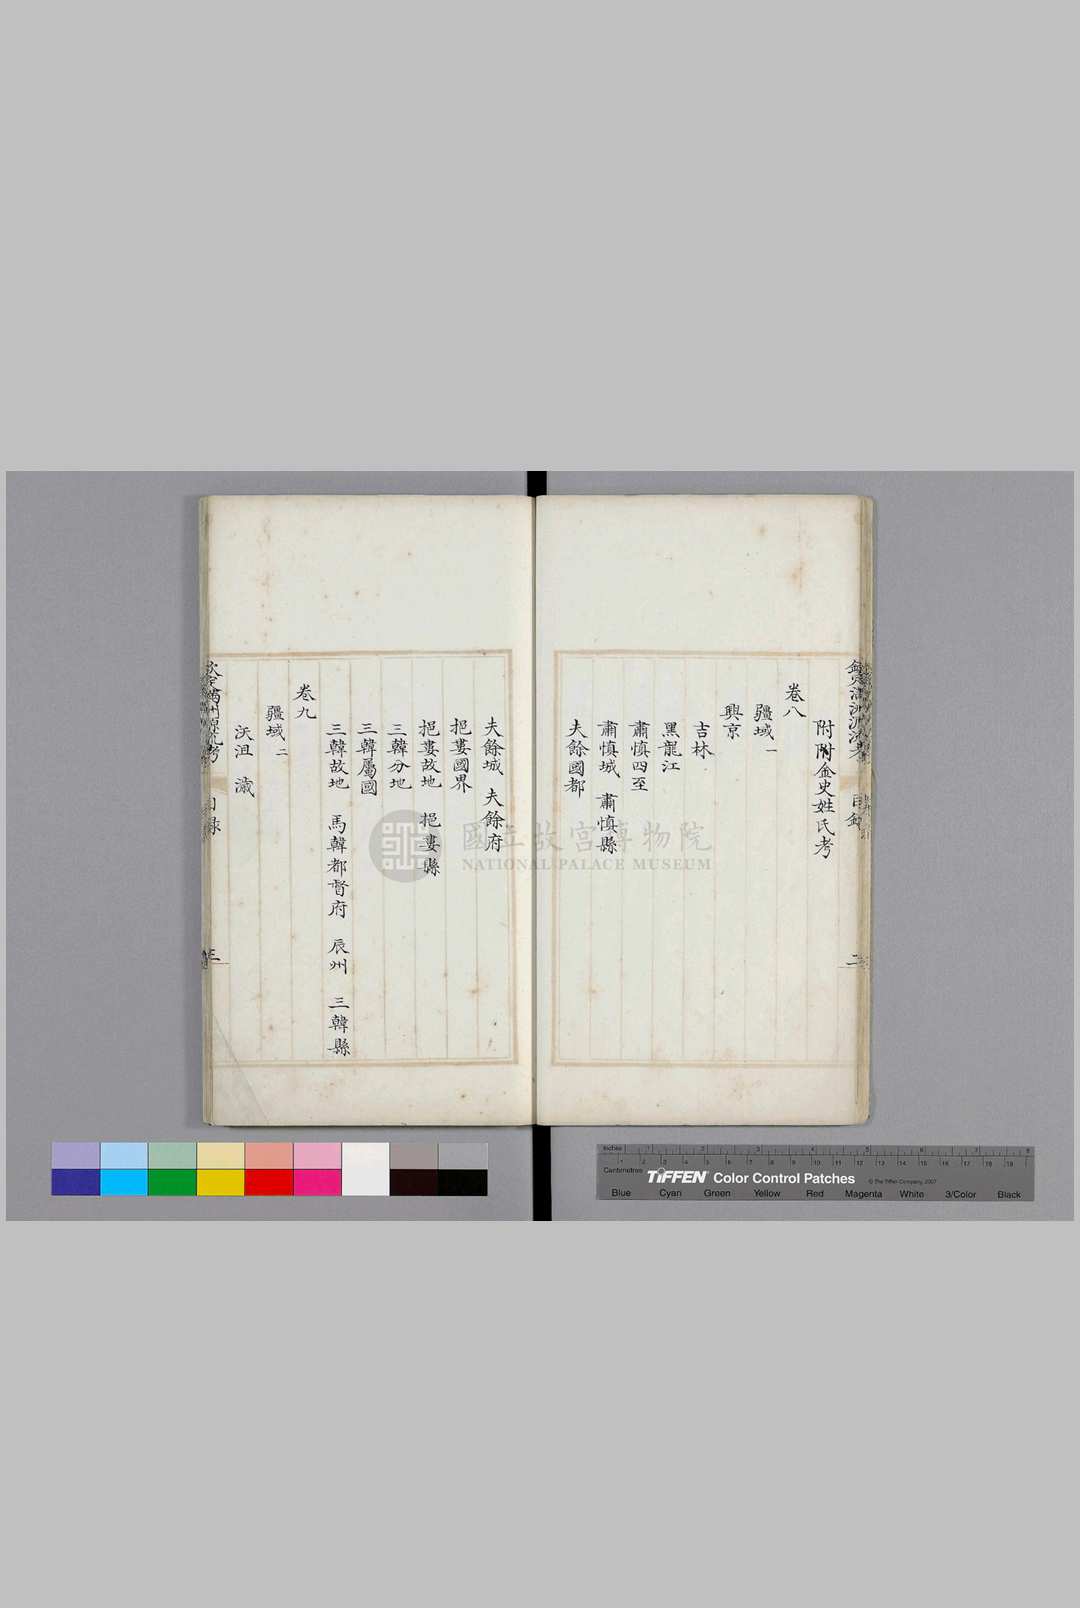 附附金史姓氏考
卷八
疆域一
興京
吉林
黑龍江
肅慎四至
肅慎城 肅慎縣
夫餘國都
目錄
二
夫餘城 夫餘府
挹婁國界
挹婁故地 挹婁縣
三韓分地
三韓屬國
三韓故地 馬韓都督府 辰州 三韓縣
卷九
疆域二
沃沮 濊
欽定滿洲源流考 目錄
三
國立故宮博物院
NATIONAL PALACE MUSEUM
Inches
1 2 3 4 5 6 7 8
Centimetres
1 2 3 4 5 6 7 8 9 10 11 12 13 14 15 16 17 18 19
TIFFEN Color Control Patches
© The Tiffen Company, 2007
Blue Cyan Green Yellow Red Magenta White 3/Color Black